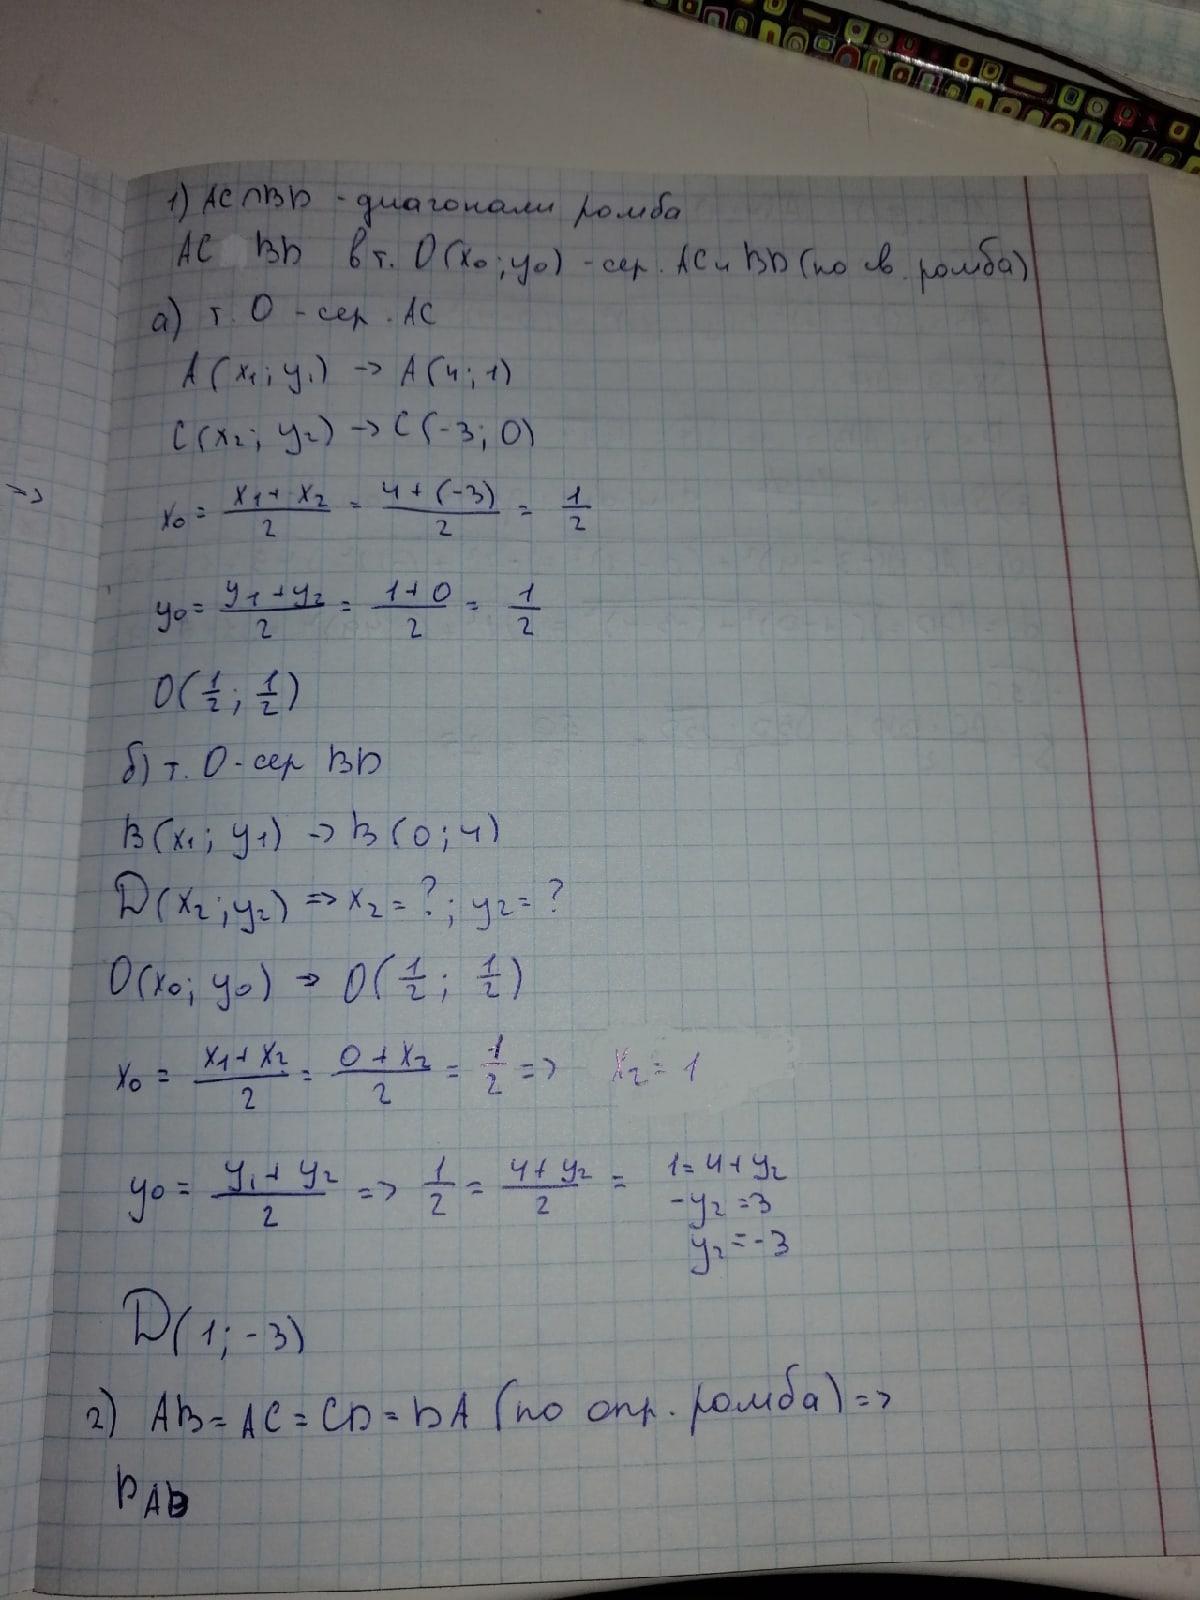 1) AC∩BD - диагонали ромба
AC BD в т. O(x₀; y₀) - сер. AC и BD (по св. ромба)
а) т. O - сер. AC
A(x₁; y₁) -> A(4; 1)
C(x₂; y₂) -> C(-3; 0)
=>
x₀ = (x₁ + x₂)/2 = (4 + (-3))/2 = 1/2
y₀ = (y₁ + y₂)/2 = (1 + 0)/2 = 1/2
O(1/2; 1/2)
б) т. O - сер BD
B(x₁; y₁) -> B(0; 4)
D(x₂; y₂) => x₂ = ?; y₂ = ?
O(x₀; y₀) -> O(1/2; 1/2)
x₀ = (x₁ + x₂)/2 = (0 + x₂)/2 = 1/2 => x₂ = 1
y₀ = (y₁ + y₂)/2 => 1/2 = (4 + y₂)/2 = 1 = 4 + y₂
-y₂ = 3
y₂ = -3
D(1; -3)
2) AB = AC = CD = DA (по опр. ромба) =>